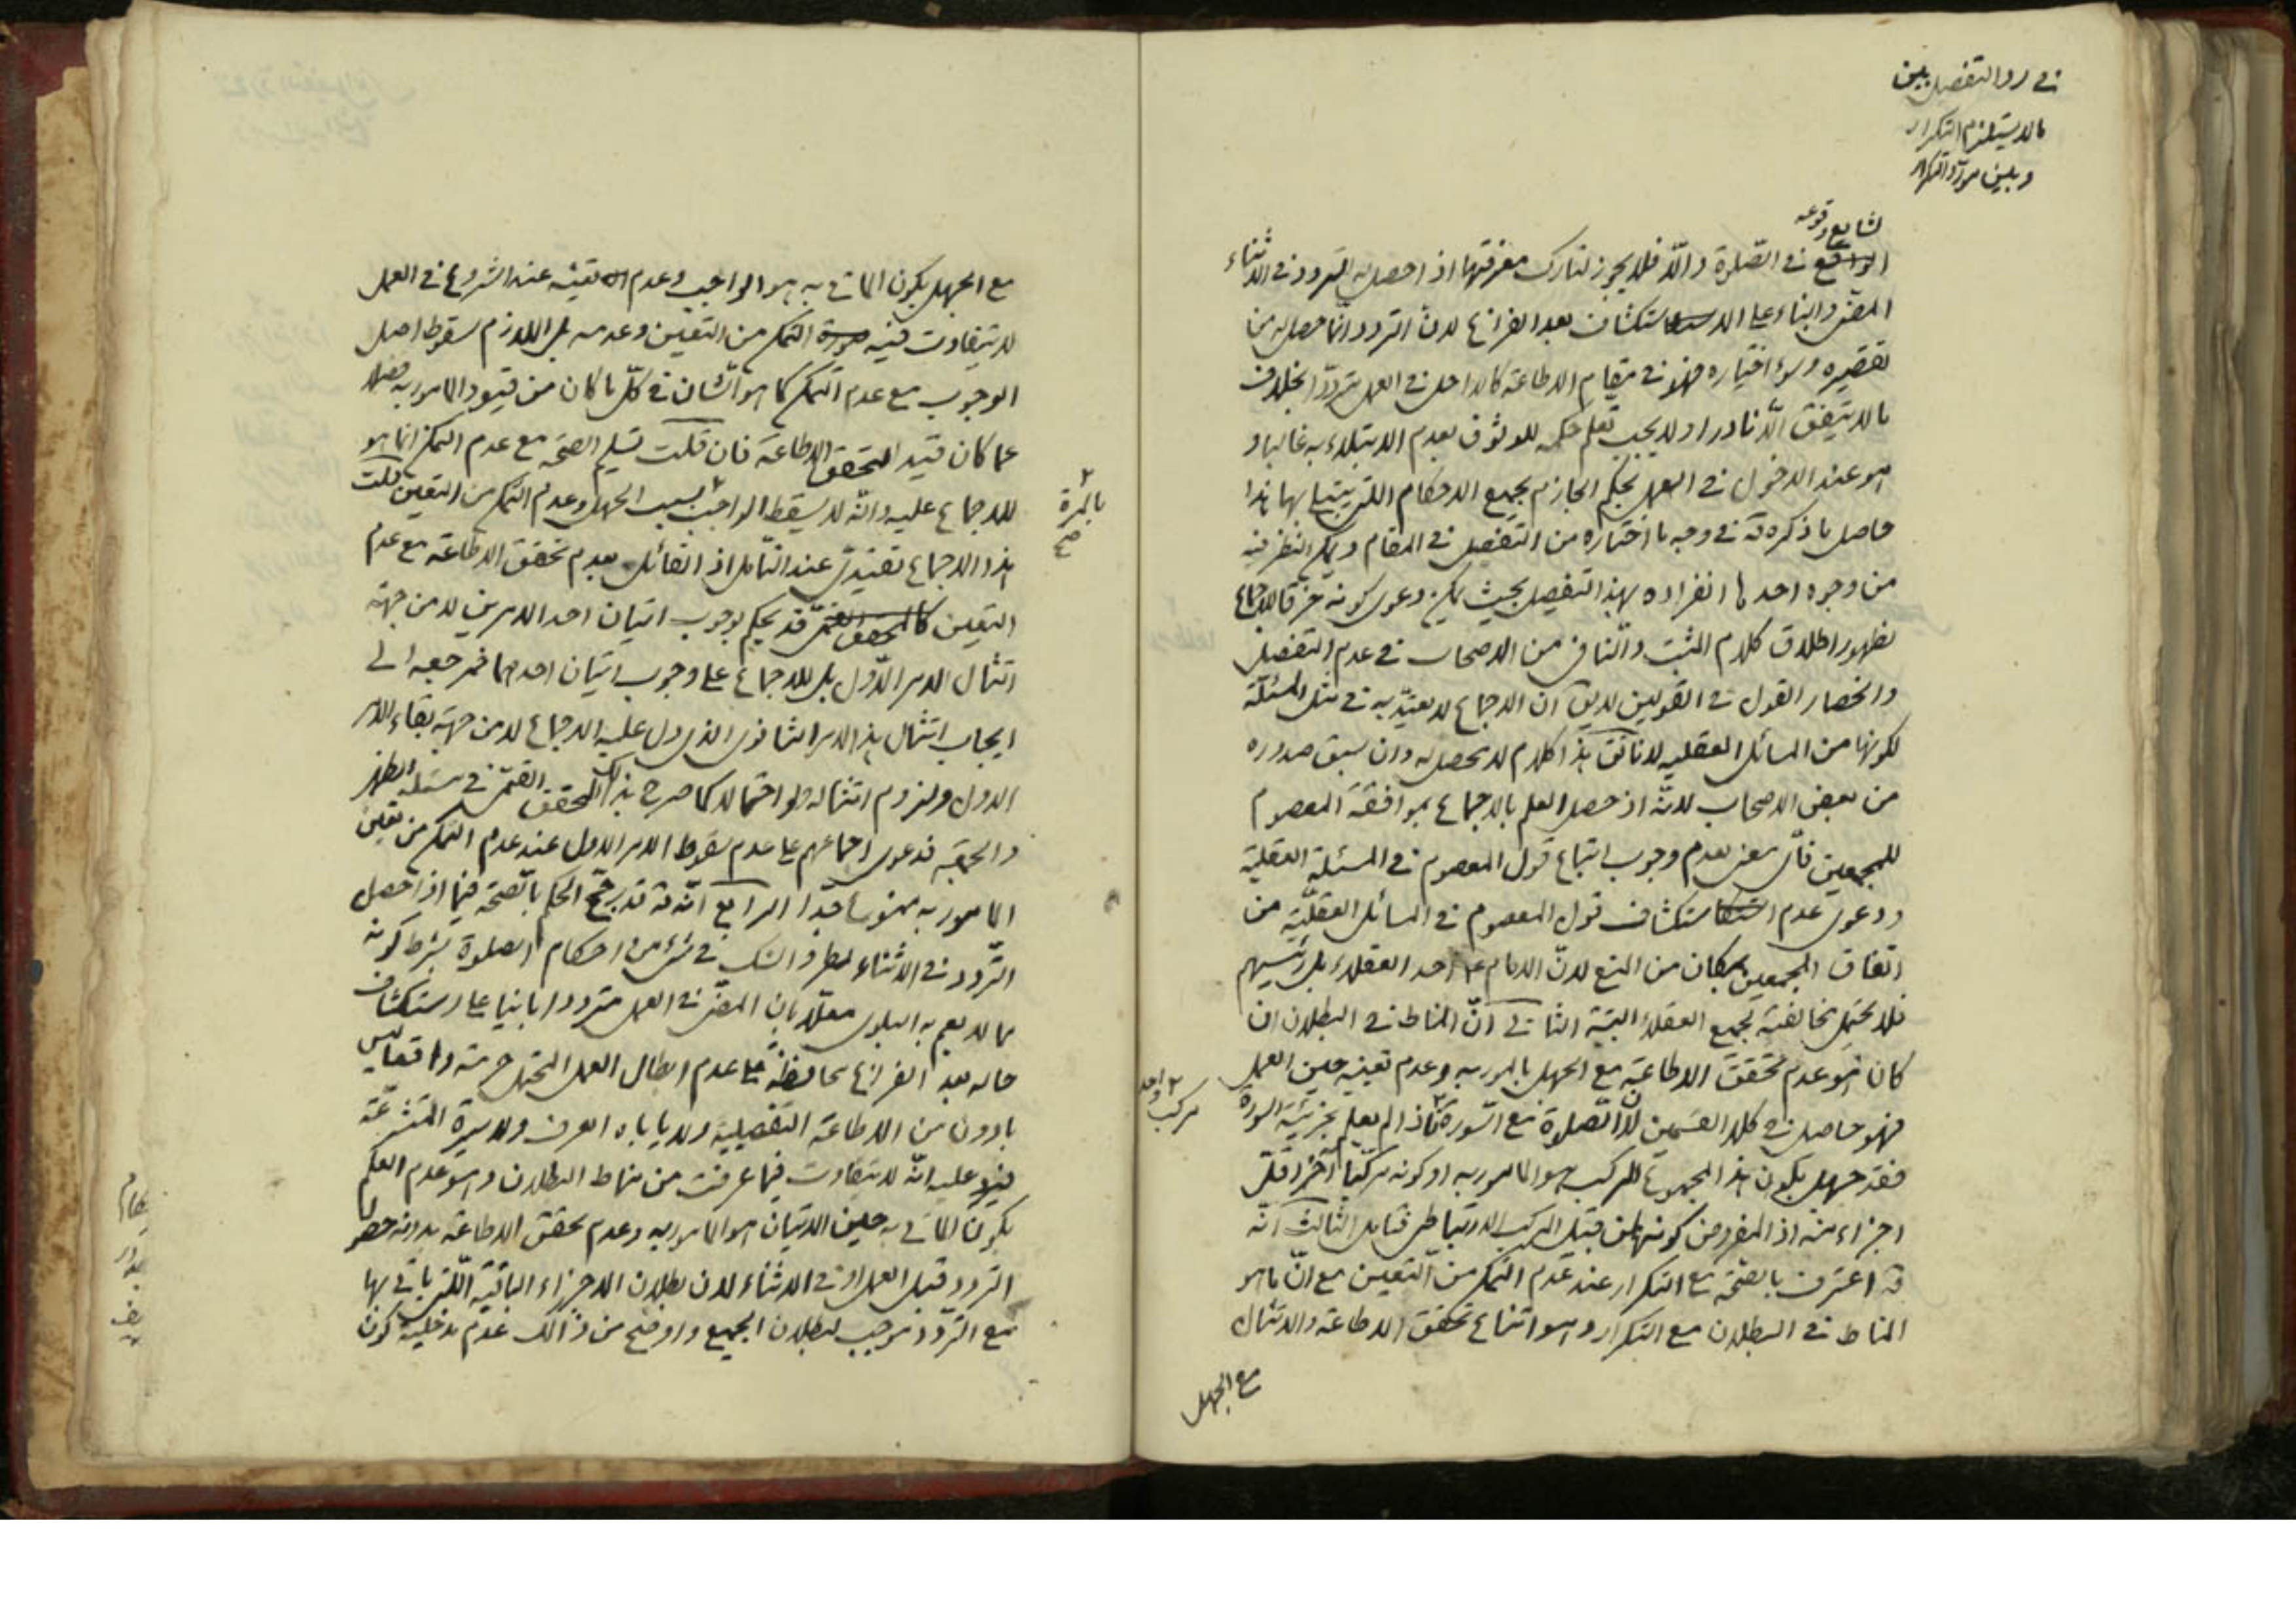 في رد التفصيل بين
ما لا يستلزم التكرار
وبين مورد التكرار
لشايع وقوعه
الواقع في الصّلوة والّا فلا يجوز لتارك معرفتها اذا حصل له التردد في الاثناء
المضى والبناء على الاستكشاف بعد الفراغ لانّ التردد انّما حصل له من
تقصيره وسوء اختياره فهو في مقام الاطاعة كالداخل في العمل مترددّا بخلاف
ما لا يتفق الّا نادرا ولا يجب تعلم حكمه للوثوق بعدم الابتلاء به غالبا و
هو عند الدخول في العمل بحكم الجازم بجميع الاحكام اللتي يبتلى بها هذا
حاصل ما ذكره قه في وجه ما اختاره من التفصيل في المقام ويمكن النظر فيه
من وجوه احدها انفراده بهذا التفصيل بحيث يمكن دعوى كونه خرقا للاجماع
لظهور اطلاق كلام المثبت والنافى من الاصحاب في عدم التفصيل
وانحصار القول في القولين لا يق انّ الاجماع لا يعتدّ به في مثل المسئلة
لكونها من المسائل العقليه لانا نق هذا كلام لا محصل له وان سبق صدوره
من بعض الاصحاب لانّه اذا حصل العلم بالاجماع بموافقة المعصوم
للمجمعين فاىّ معنى لعدم وجوب اتباع قول المعصوم في المسئلة العقليّة
ودعوى عدم استكشاف قول المعصوم في المسائل العقليّة من
اتفاق المجمعين بمكان من المنع لانّ الامام ع احد العقلاء بل رئيسهم
فلا يحتمل مخالفته لجميع العقلاء البتّة الثاني انّ المناط في البطلان ان
كان هو عدم تحقق الاطاعة مع الجهل بالمامور به وعدم تعينه حين العمل
فهو حاصل في كلا القسمين لانّ الصلوة مع السّورة مثلا اذا لم يعلم بجزئيّة السورة
فقد جهل بكون هذا المجموع المركب هو المامور به او كونه مركبا آخر اقلّ
٢ واحد
مركب
اجزاء منه اذ المفروض كونها من قبيل المركب الارتباطى فتامل الثالث انّه
قه اعترف بالصّحّة مع التكرار عند عدم التمكن من التعيين مع انّ ما هو
المناط في البطلان مع التكرار وهو امتناع تحقق الاطاعة والامتثال
مع الجهل
مع الجهل بكون الماتى به هو الواجب وعدم تعينه عند الشروع في العمل
لا يتفاوت فيه صورة التمكن من التعيين وعدمه بل اللازم سقوط اصل
الوجوب مع عدم التمكن كما هو الشان في كلّ ما كان من قيود المامور به فضلا
عما كان قيد التحقق الاطاعة فان قلت تسليم الصحّة مع عدم التمكن انما هو
للاجماع عليه وانّه لا يسقط الواجب بسبب الجهل وعدم التمكن من التعيين قلت
٢
بالمرة
صح
هذا الاجماع تقييدىّ عند التأمل اذ القائل بعدم تحقق الاطاعة مع عدم
التعيين كالمحقق القمّى قد يحكم بوجوب اتيان احد الامرين لا من جهة
امتثال الامر الاول بل للاجماع على وجوب اتيان احدهما فمرجعه الى
ايجاب امتثال هذا الامر الثانوى الذى دل عليه الاجماع لا من جهة بقاء الامر
الاول ولزوم امتثاله ولو احتمالا كما صرح بذلك المحقق القمّى في مسئلة الظهر
والجمعة فدعوى اجماعهم على عدم سقوط الامر الاول عند عدم التمكن من تعيين
المامور به ممنوعة جدّا الرابع انّه قه قد رجّح الحكم بالصّحّة فيما اذا حصل
التّردد في الاثناء لطروّ الشك في شئ من احكام الصلوة بشرط كونه
مما لا يعم به البلوى معلّلا بان المضىّ في العمل مترددا بانيا على استكشاف
حاله بعد الفراغ محافظة على عدم ابطال العمل المحتمل حرمته واقعا ليس
بادون من الاطاعة التفصيلية ولا ياباه العرف ولا سيرة المتشرعة
فيرد عليه انّه لا يتفاوت فيما عرفت من مناط البطلان وهو عدم العلم
بكون الماتى به حين الاتيان هو المامور به وعدم تحقق الاطاعة بدونه حصول
التردد قبل العمل او في الاثناء لان بطلان الاجزاء الباقية اللتي ياتى بها
مع التردّد موجب لبطلان الجميع واوضح من ذالك عدم مدخلية كون